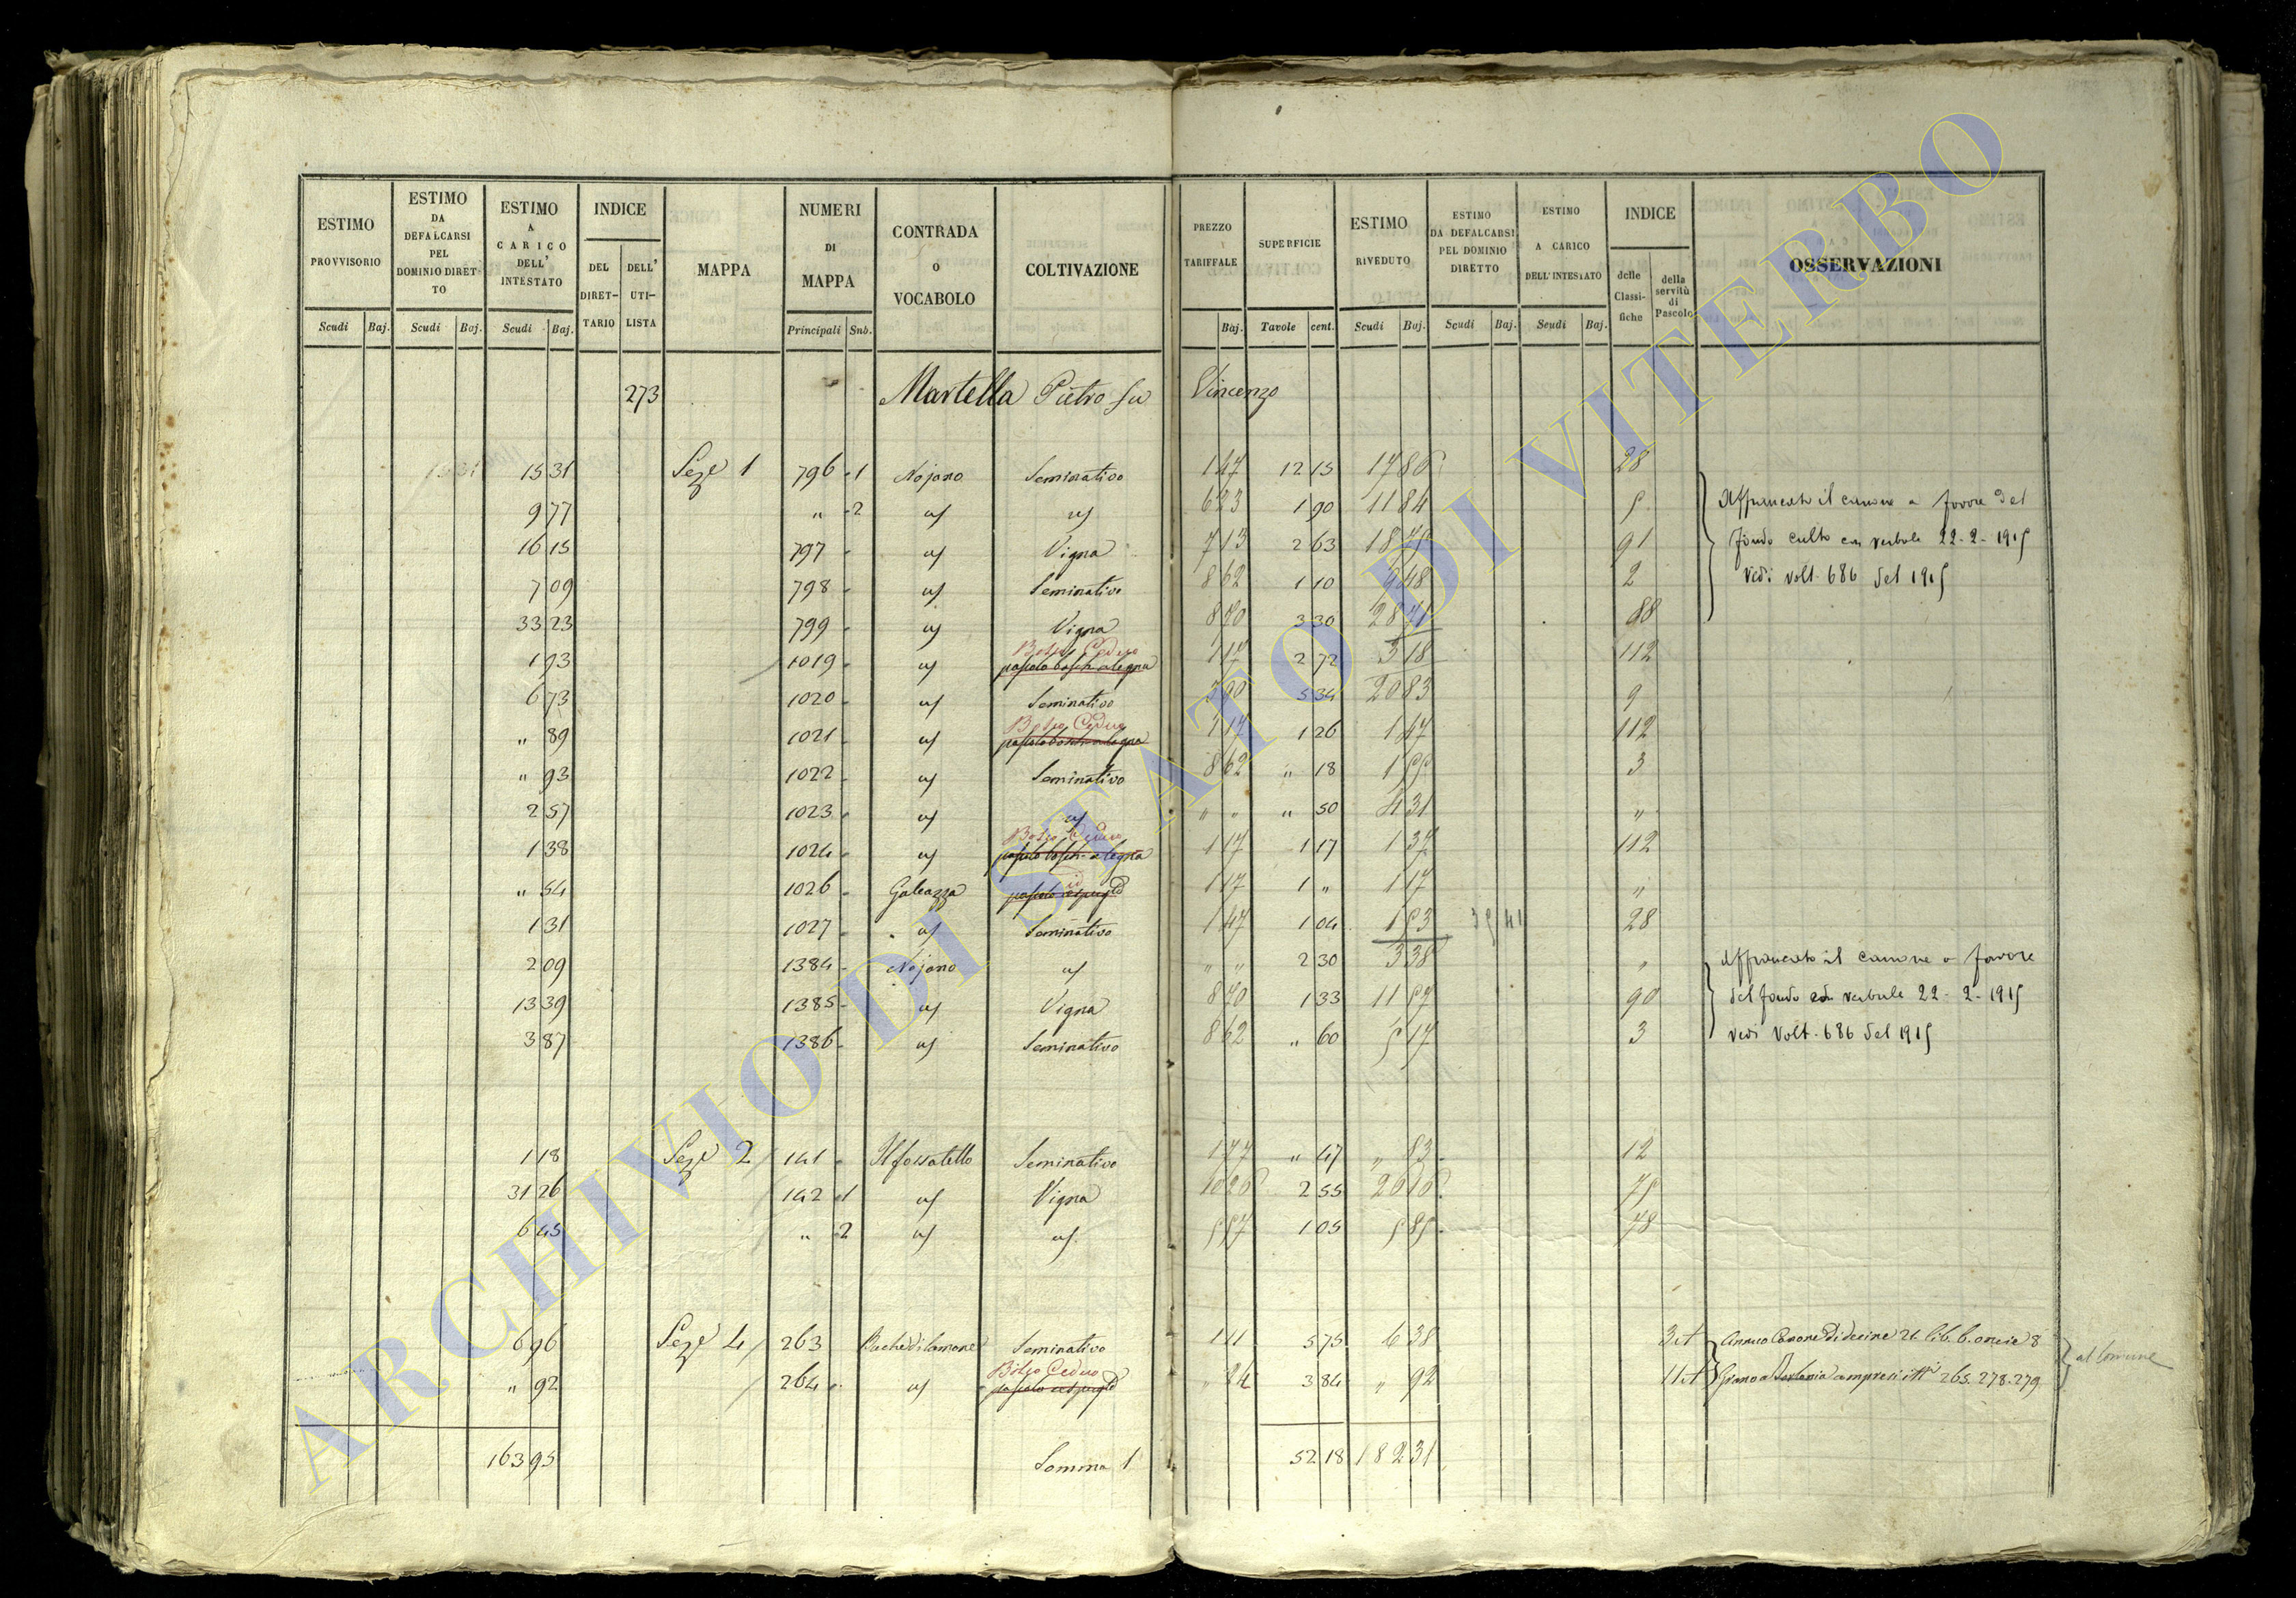 ESTIMO PROVVISORIO Scudi Baj.
ESTIMO DA DEFALCARSI PEL DOMINIO DIRET- TO Scudi Baj.
ESTIMO A CARICO DELL' INTESTATO Scudi Baj.
INDICE DEL DIRET- TARIO DELL' UTI- LISTA
MAPPA
NUMERI DI MAPPA Principali Snb.
CONTRADA O VOCABOLO
COLTIVAZIONE
PREZZO TARIFFALE Baj.
SUPERFICIE Tavole cent.
ESTIMO RIVEDUTO Scudi Baj.
ESTIMO DA DEFALCARSI PEL DOMINIO DIRETTO Scudi Baj.
ESTIMO A CARICO DELL'INTESTATO Scudi Baj.
INDICE delle Classi- fiche della servitù di Pascolo
OSSERVAZIONI
273 Martella Pietro fu Vincenzo
15 31 Seze 1 796 1 Nojano Seminativo 1 47 12 15 17 86 28
9 77 " 2 uf uf 6 23 1 90 11 84 5 Affrancato il canone a favore del
16 15 797 uf Vigna 7 13 2 63 18 75 91 fondo culto con verbale 22-2-1915
7 09 798 uf Seminativo 8 62 1 10 9 48 2 Vedi volt. 686 del 1915
33 23 799 uf Vigna 8 70 3 30 28 71 88
1 93 1019 uf Bosco Ceduo 1 17 2 72 3 18 112
6 73 1020 uf Seminativo 5 34 20 83 9
" 89 1021 uf Bosco Ceduo 1 17 1 26 1 47 112
" 93 1022 uf Seminativo 8 62 " 18 1 55 3
2 57 1023 uf uf " " " 50 4 31 "
1 38 1024 uf Bosco Ceduo 1 17 1 17 1 37 112
" 54 1026 Galeazza id 1 17 1 " 1 17 "
1 31 1027 uf Seminativo 1 47 1 04 1 53 35 41 28
2 09 1384 Nojano uf " " 2 30 3 38 " Affrancato il canone a favore
13 39 1385 uf Vigna 8 70 1 33 11 57 90 del fondo con verbale 22-2-1915
3 87 1386 uf Seminativo 8 62 " 60 5 17 3 vedi Volt. 686 del 1915
1 18 Seze 2 141 Il fossatello Seminativo 1 77 " 47 " 83 12
31 26 142 1 uf Vigna 10 26 2 55 26 16 75
6 45 " 2 uf uf 5 57 1 05 5 85 78
6 96 Seze 4 263 Seminativo 1 11 5 75 6 38 3 Annuo Canone di decine 21 lib. 6. oncie 8
" 92 264 uf Bosco Ceduo " 24 3 84 " 92 11 265. 278. 279 al Comune
163 95 Somma 1 52 18 182 31
ARCHIVIO DI STATO DI VITERBO